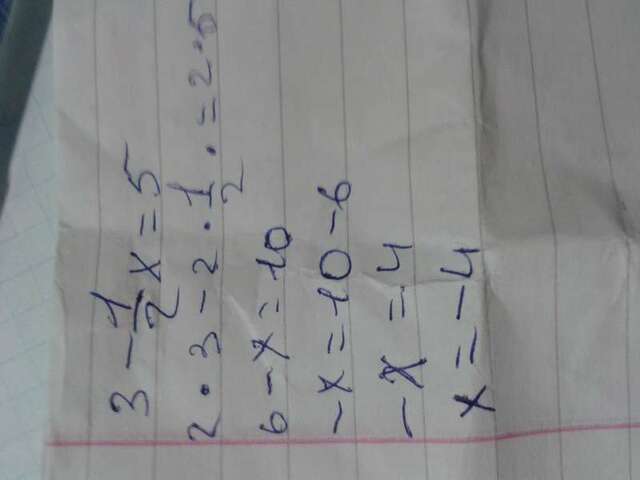 3 - 1/2 x = 5
2 · 3 - 2 · 1/2 · = 2 · 5
6 - x = 10
-x = 10 - 6
-x = 4
x = -4